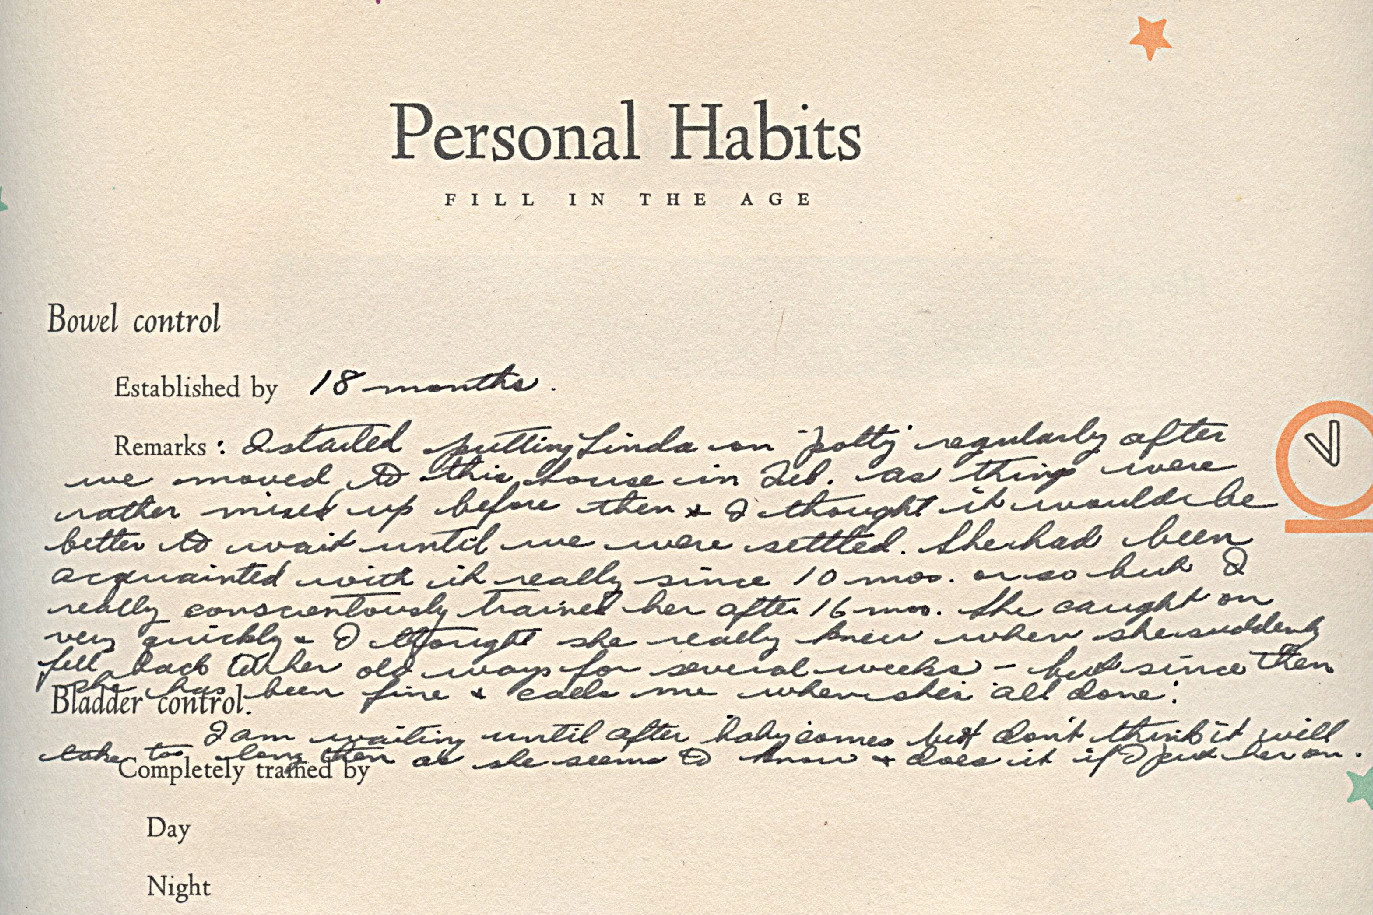 Personal Habits
FILL IN THE AGE
Bowel control
Established by 18 months.
Remarks: I started putting Linda on "potty" regularly after
we moved to this house in Feb. as things were
rather mixed up before then & I thought it would be
better to wait until we were settled. She had been
acquainted with it really since 10 mos. or so but I
really conscientously trained her after 16 mos. She caught on
very quickly & I thought she really knew when she suddenly
fell back to her old ways for several weeks – but since then
she has been fine & calls me when she's "all done".
Bladder control.
I am waiting until after baby comes but don't think it will
take too long then as she seems to know & does it if I put her on.
Completely trained by
Day
Night